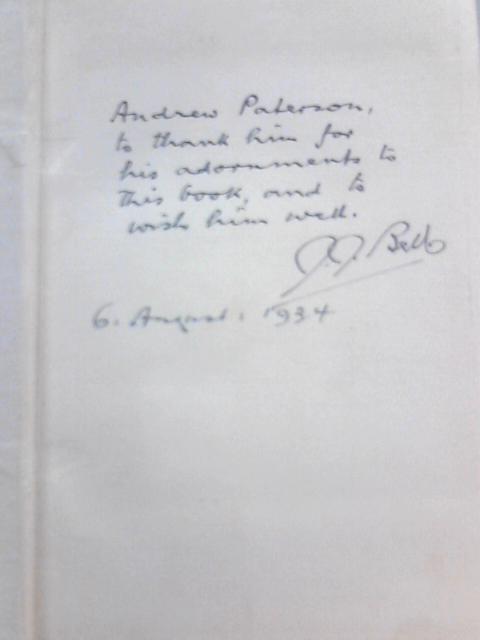 Andrew Paterson,
to thank him for
his adornments to
this book, and to
wish him well.
J. J. Bell
6. August. 1934